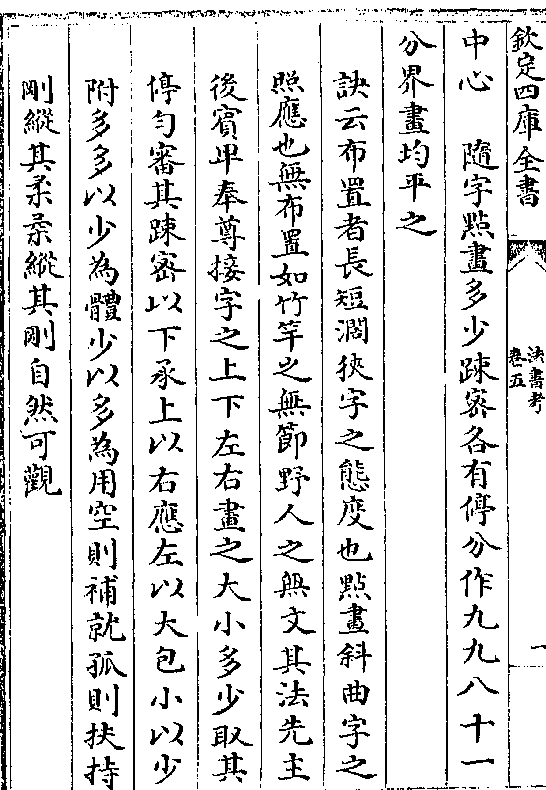 欽定四庫全書
法書考
卷五
一
中心　隨字點畫多少踈宻各有停分作九九八十一
分界畫均平之
訣云布置者長短濶狹字之態度也點畫斜曲字之
照應也無布置如竹竿之無節野人之無文其法先主
後賓卑奉尊接字之上下左右畫之大小多少取其
停勻審其踈宻以下承上以右應左以大包小以少
附多多以少為體少以多為用空則補就孤則扶持
剛縱其柔柔縱其剛自然可觀